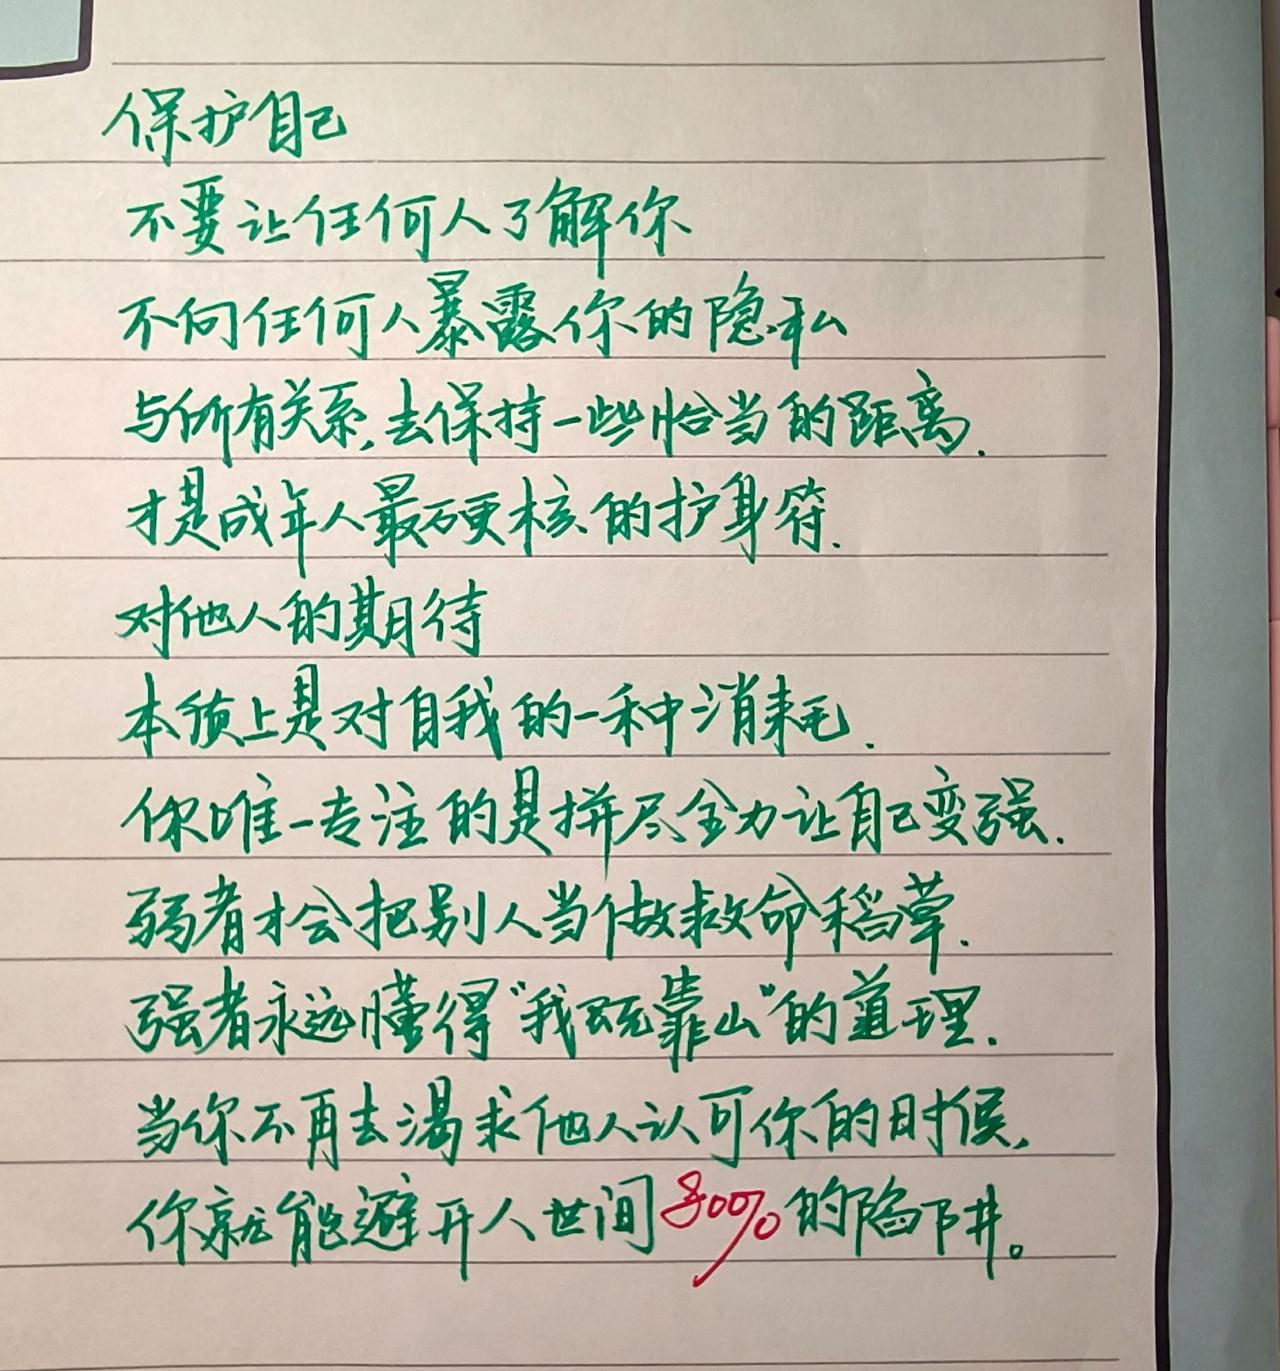 保护自己
不要让任何人了解你
不向任何人暴露你的隐私
与所有关系,去保持一些恰当的距离.
才是成年人最硬核的护身符.
对他人的期待
本质上是对自我的一种消耗.
你唯一专注的是拼尽全力让自己变强.
弱者才会把别人当做救命稻草.
强者永远懂得“我既靠山”的道理.
当你不再去渴求他人认可你的时候,
你就能避开人世间800%的陷阱。